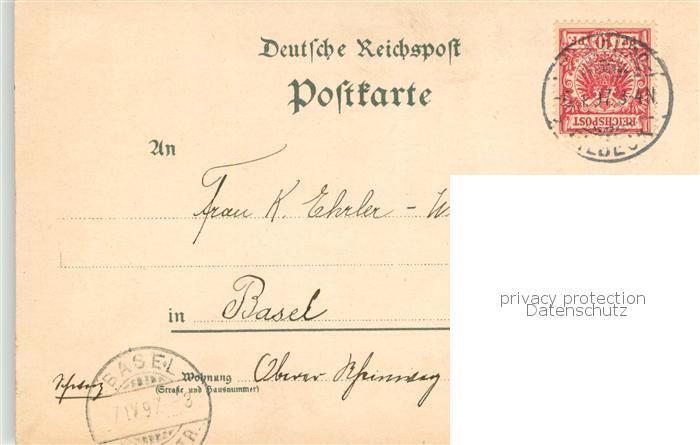 Deutsche Reichspost
Postkarte
10
REICHSPOST
An
Frau K. Ehrler - W
privacy protection
Datenschutz
in Basel
Wohnung Oberer Rheinweg
(Straße und Hausnummer)
Schweiz
BASEL
7 IV 97